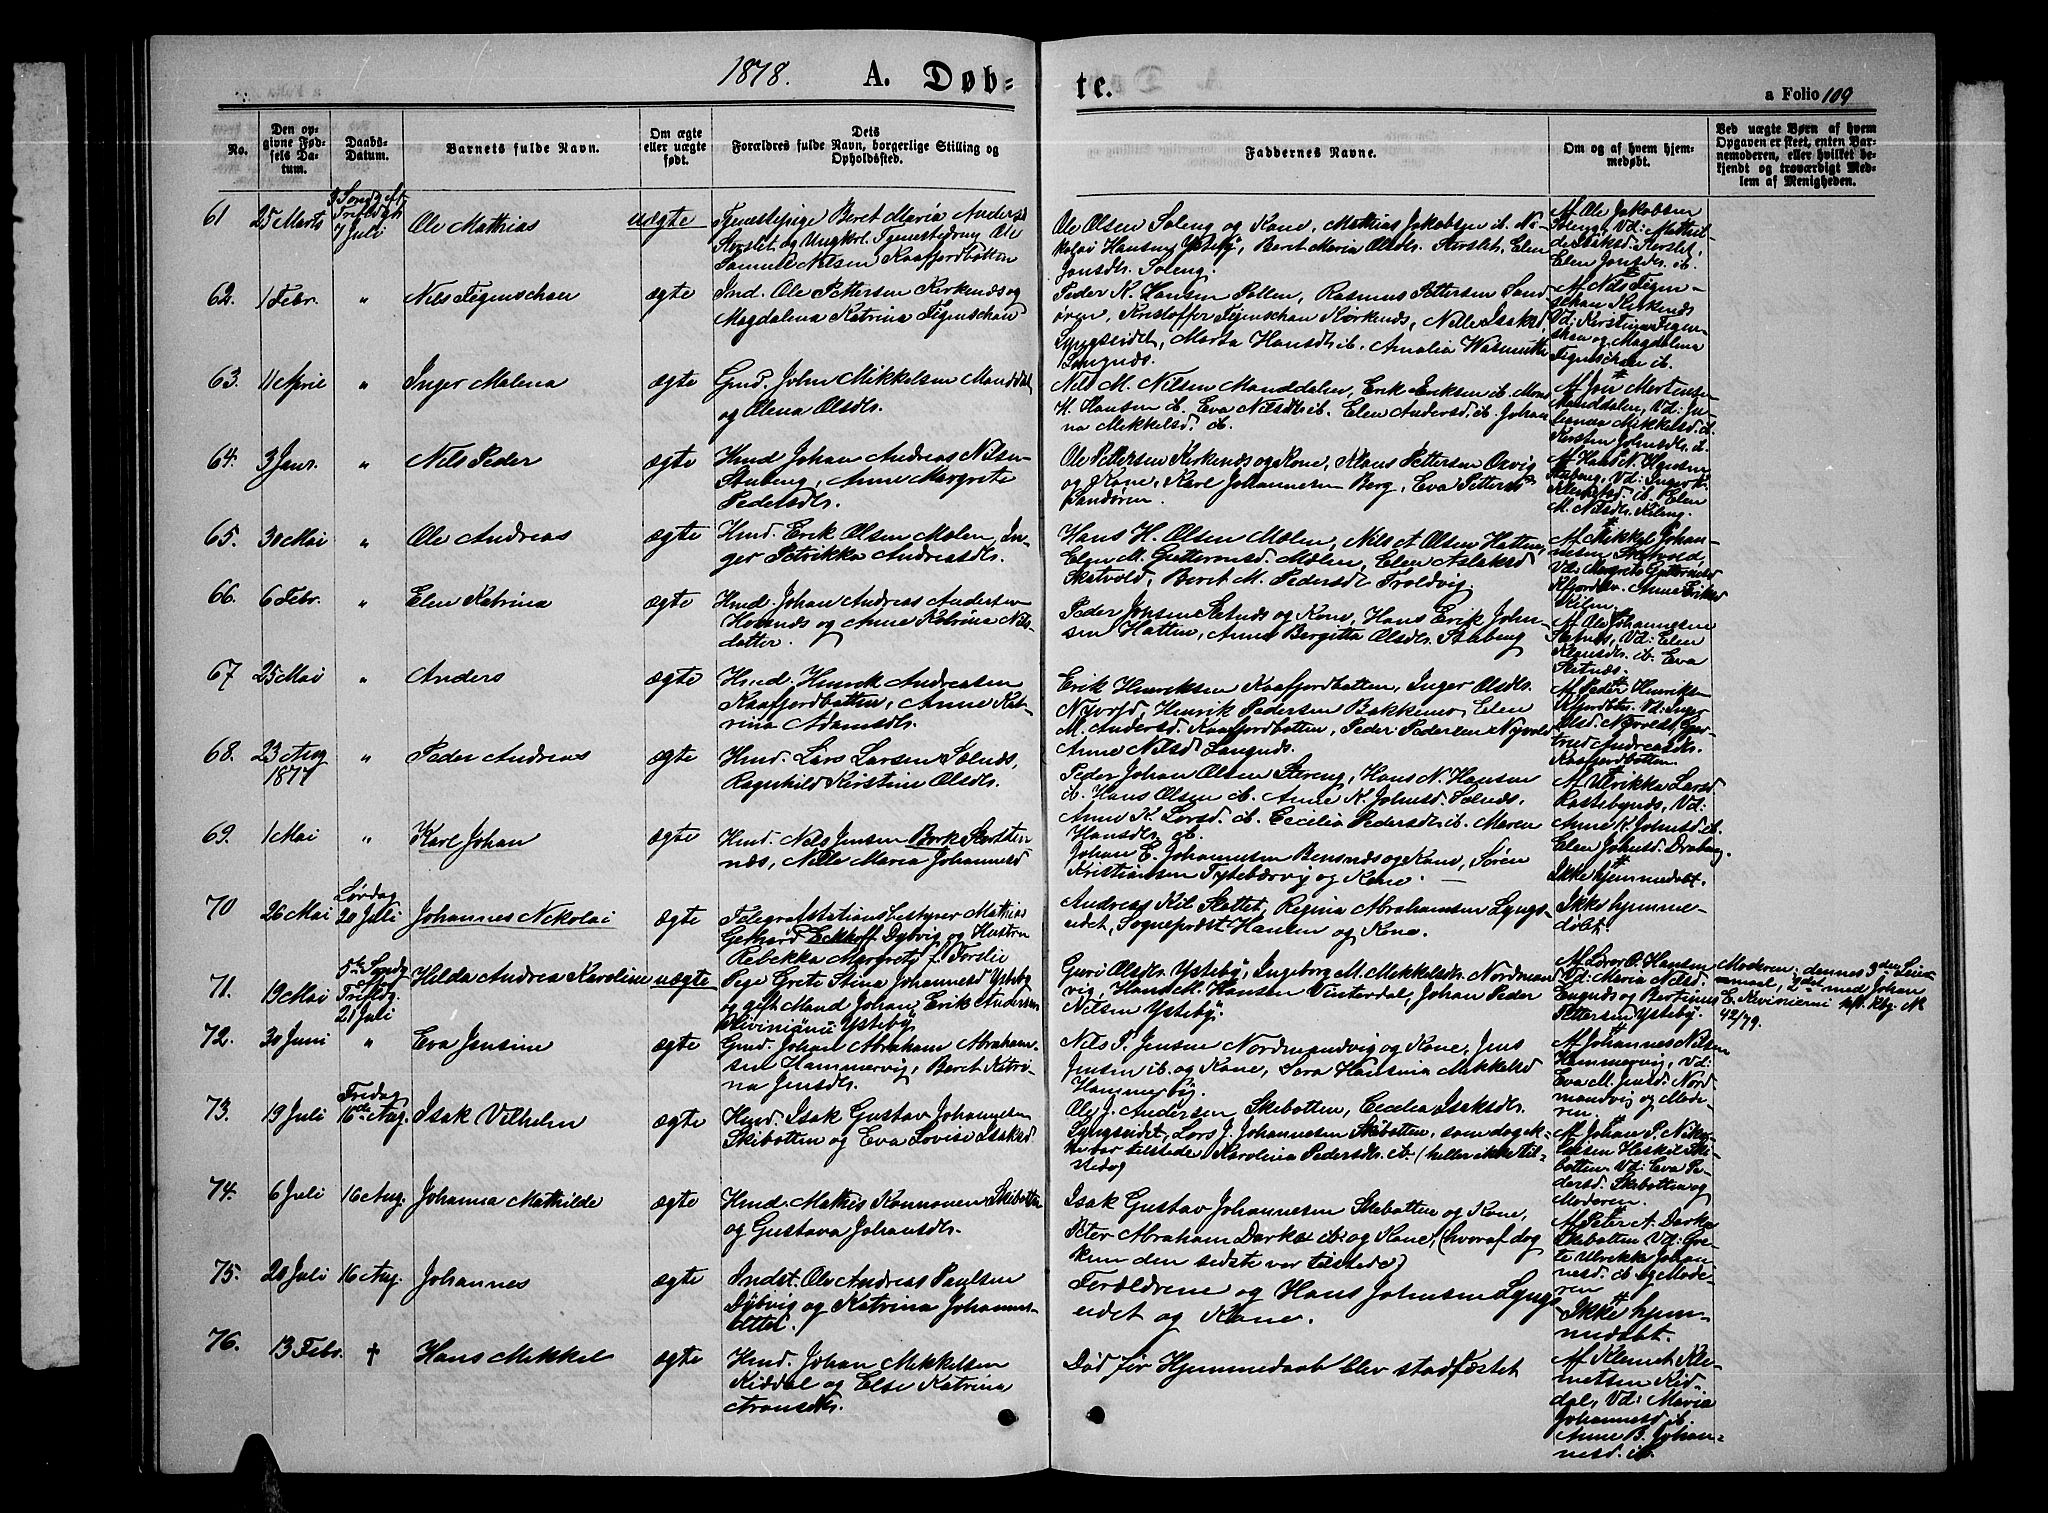 1878. A. Døb=
te.
a Folio 109
No.
Den op=
givne Fød=
sels Da=
tum.
Daabs=
Datum.
Barnets fulde Navn.
Om ægte
eller uægte
født.
Dets
Forældres fulde Navn, borgerlige Stilling og
Opholdssted.
Faddernes Navne.
Om og af hvem hjem=
medøbt.
Ved uægte Børn af hvem
Opgaven er skeet, enten Bar=
nemoderen, eller hvilket be=
kjendt og troværdigt Med=
lem af Menigheden.
61 25 Marts 7 Juli Ole Mathias uægte
Tjenestepige Beret Maria Andersd
og Ungkrl. Tjenestedreng Ole
Samuel Nilsen Kaafjordbotten
Ole Olsen Soleng og Kone, Mathias Jakobsen ib. Ni-
kolai Hansen Ysteby, Beret Maria Olsdr. Kerslet, Elen
Jonsdr. Soleng.
Af Ole Jakobsen
Soleng, Vd: Mathil-
de Isaksd. Kerslet,
Elen Jonsdr. ib.
62. 1 Febr. " Nils Figenschau ægte
Ind. Ole Pettersen Kirkenæs og
Magdalena Katrina Figenschau
Peder K. Hansen Pollen, Rasmus Pettersen Sand
ören, Kristoffer Figenschau Kirkenæs, Nille Isaksd.
Lyngseidet, Marta Hansdr ib. Amalia Wasmuth
Langnæs.
Af Nils Figen-
schau Kirkenæs
Vd: Kerstina Figen-
schau og Magdalena
Figenschau ib.
63. 11 April " Inger Malena ægte
Gmd. John Mikkelsen Manddal
og Elena Olsdr.
Nils M. Nilsen Manddalen, Erik Eriksen ib. Mons
H. Hansen ib. Eva Nilsdr ib. Elen Andersd. ib. Johan-
na Mikkelsd. ib.
Af Jon Mortense
Manddalen, Vd: Jo-
hanna Mikkelsd. ib.
Kersten Johnsdr. ib.
64. 3 Janr. " Nils Peder ægte
Hmd Johan Andreas Nilsen
Stubeng, Anne Margrete
Pedersdr.
Ole Pettersen Kirkenæs og Kone, Klaus Pettersen Oxvig
og Kone, Karl Johannesen Berg, Eva Pettersd
Sandören.
Af Hans N. Hansen
Vd: Inger K.
Klemetsd. ib. Elen
M. Nilsdr.
65. 30 Mai " Ole Andreas ægte
Hmd. Erik Olsen Molen, In-
ger Petrikka Andreasdr.
Hans H. Olsen Mølen, Nils A Olsen Hatten,
Elen M. Guttormsd. Mølen, Elen Aslaksd
Skatvold, Beret M. Pedersdr Troldvig.
Af Mikkel Johan-
nesen Skatvold,
Vd: Margrete Guttormsd
Anne Eriksd
66. 6 Febr. " Elen Katrina ægte
Hmd. Johan Andreas Andersen
Hornæs og Anne Katrina Nils-
datter.
Peder Jonsen Sætnæs og Kone, Hans Erik John-
sen Hatten, Anne Bergitta Olsdr. Stubeng
Af Ole Johannesen
Sætnæs, Vd: Elen
Klausdr. ib. Eva
Sætnæs.
67 25 Mai " Anders ægte
Hmd. Henrik Andreasen
Kaafjordbotten, Anne Kat-
rina Adamsdr.
Erik Henriksen Kaafjordbotten, Inger Olsdr.
Nyvold, Henrik Pedersen Bakkemo, Elen
M. Andersd. Kaafjordbotten, Peder Pedersen Nyvold
Anne Nilsd Langnæs.
Af Peder Henriks-
Vd: Inger
Olsd. Nyvold, Gjer-
trud Andreasdr.
Kaafjordbotten.
68. 23 Aug " Peder Andreas ægte
1877
Hmd. Lars Larsen Solnæs,
Ragnhild Kirstine Olsdr.
Peder Johan Olsen Storeng, Hans N. Hansen
ib. Hans Olsen ib. Anne K. Johnsd. Solnæs.
Anne K. Larsd. ib. Cecilia Pedersdr. ib. Maren
Hansdr. ib.
Af Ulrikka Larsd
Rastebynæs, Vd:
Anne K. Johnsd. ib.
Elen Johnsd. Drabeng.
69. 1 Mai " Karl Johan ægte
Hmd. Nils Jensen Bork Skorsten
næs, Nille Maria Johannesd
Johan E. Johannesen Bensnæs og Kone, Sören
Kristiansen Tytebærvig og Kone.
Ikke hjemmedøbt.
70 26 Mai Lørdag
20 Juli Johannes Nikolai ægte
Telegrafstationsbestyrer Mathias
Gerhard Eckhoff Dybvig og Hustru
Rebekka Margrete f. Fordie
Andreas Kil Slottet, Regina Abrahamsen Lyngs-
eidet, Sogneprest Hansen og Kone.
Ikke hjemme-
døbt.
71. 19 Mai 5te Sønd
Trifldg.
21 Juli Hilda Andrea Karoline uægte
Pige Grete Stina Johannesd Ysteby
og gift Mand Johan Erik Andersen
Kiviniämi Ysteby
Guri Olsdr. Ysteby, Ingeborg M. Mikkelsdr. Nordmand
vig, Hans M. Hansen Vinterdal, Johan Peder
Nilsen Ysteby.
Af Lars P. Hansen
Vd: Maria Nilsd.
Engnæs og Bertinus
Pettersen Ysteby.
Moderen; dennes 3die Leier-
maal, 2det med Johan
E. Kiviniemi kfr. Kbg. N
42/79.
72. 30 Juni " Eva Jensine ægte
Gmd. Johan Abraham Abraham-
sen Hammervig, Beret Katri-
na Jensdr.
Nils P. Jensen Nordmandvig og Kone, Jens
Jensen ib. og Kone, Sara Hansina Mikkelsd
Hammervig.
Af Johannes Nilsen
Hammervig, Vd:
Eva M. Jensd. Nord
mandvig og Mode-
ren.
73. 19 Juli Fredag
16de Aug. Isak Vilhelm ægte
Hmd. Isak Gustav Johannesen
Skibotten og Eva Lovise Isaksd
Ole J. Andersen Skibotten, Cecilia Isaksdr.
Lyngseidet, Lars J. Johannesen Skibotten, som dog ik-
ke var tilstede Karolina Pedersdr. ib. (heller ikke til-
stede)
Af Johan P. Niko-
laisen Heskil Ski-
botten, Vd: Eva Pe-
dersd. Skibotten og
Moderen.
74. 6 Juli 16 Aug. Johanna Mathilde ægte
Hmd. Mathis Konnonen Skibotten
og Gustava Johansdr.
Isak Gustav Johannesen Skibotten og Kone,
Peter Abraham Darke ib: og Kone, (hvoraf dog
kun den sidste var tilstede)
Af Peter A. Darke
Skibotten Vd: Gre-
te Ulrikke Johan-
nesd. ib. og Mode-
ren
75. 20 Juli 16 Aug. Johannes ægte
Indst. Ole Andreas Paulsen
Dybvig og Katrina Johannes-
datter.
Forældrene og Hans Johnsen Lyngs-
eidet og Kone.
Ikke hjem-
medøbt.
76. 13 Febr. † Hans Mikkel ægte
Hmd. Johan Mikkelsen
Kiddal og Else Katrina
Aronsdr.
Død før Hjemmedaab blev stadfæstet
Af Klemet Kle-
metsen Kid-
dal, Vd: Maria
Johannesd. ib.
Anne B. Johan-
nesd. ib.